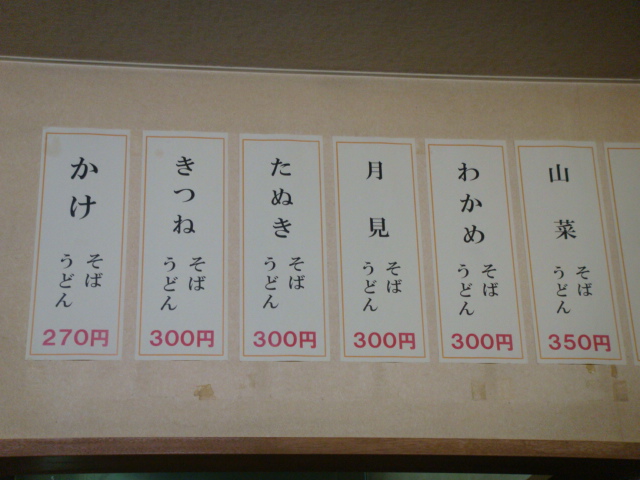 かけ
そば
うどん
270円
きつね
そば
うどん
300円
たぬき
そば
うどん
300円
月見
そば
うどん
300円
わかめ
そば
うどん
300円
山菜
そば
うどん
350円